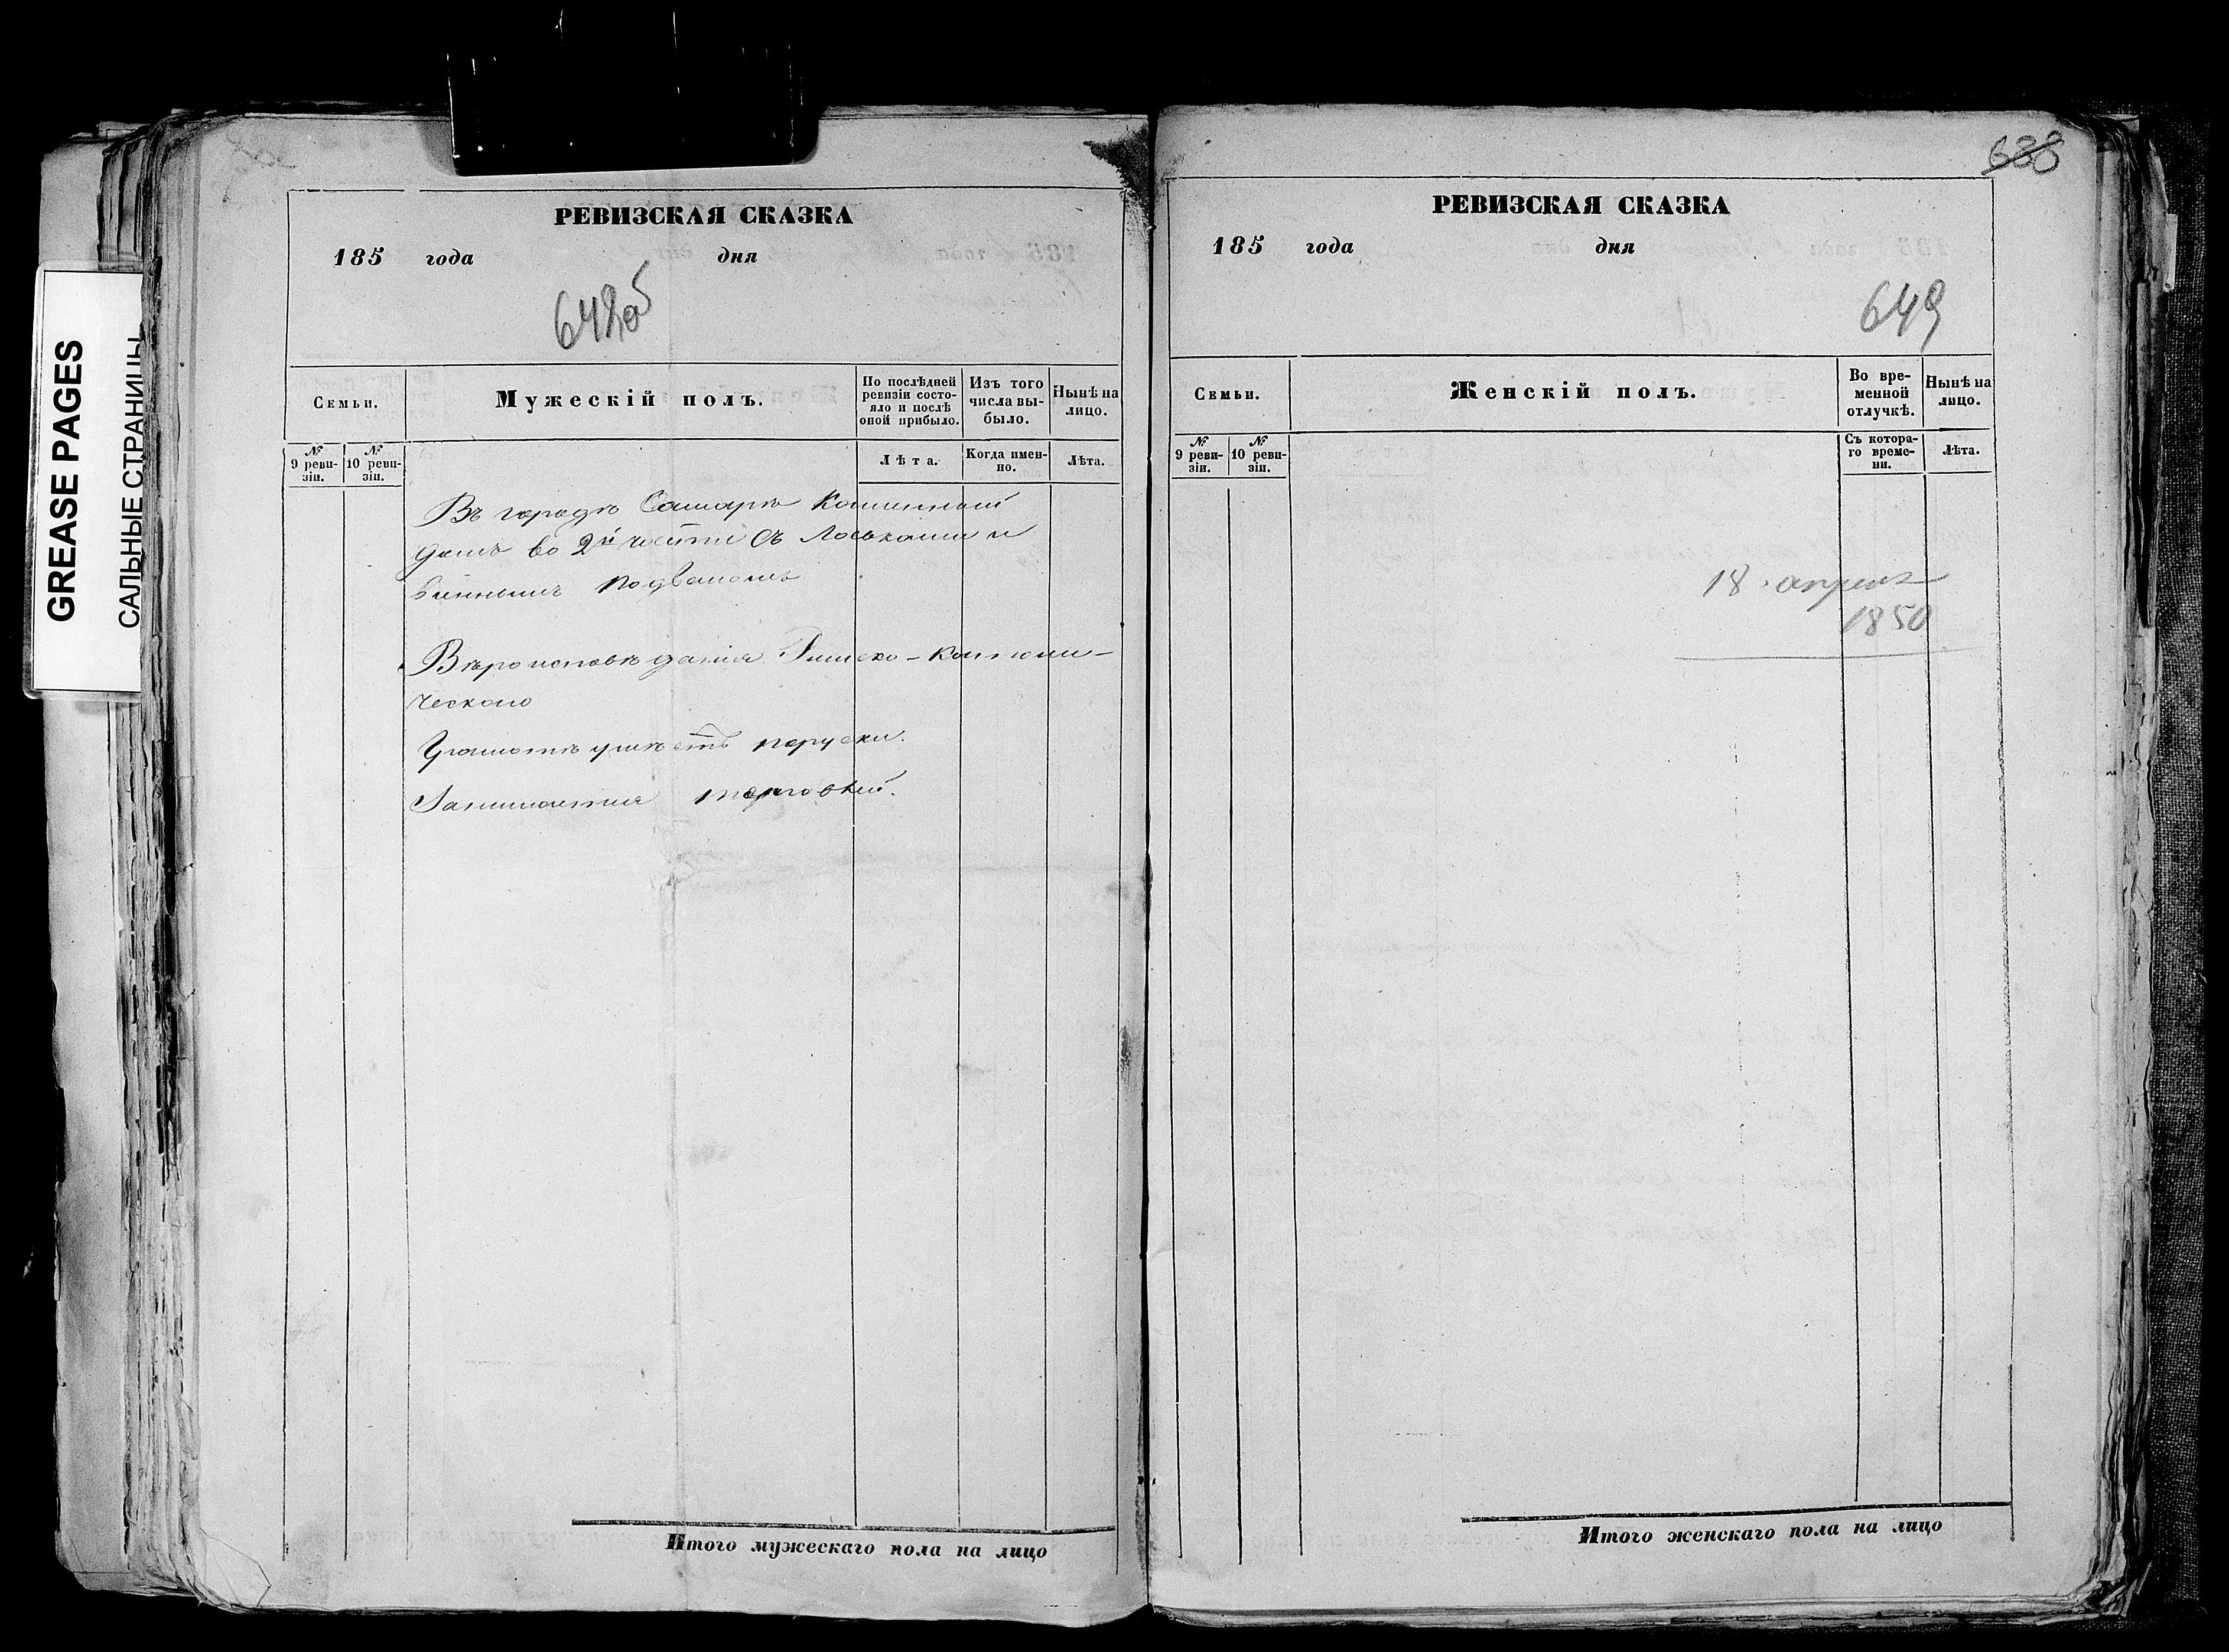 GREASE PAGES
САЛЬНЫЕ СТРАНИЦЫ
РЕВИЗСКАЯ СКАЗКА
185 года дня
648об
Семьи.
Мужескій полъ.
По послѣдней ревизіи состояло и послѣ оной прибыло.
Изъ того числа выбыло.
Нынѣ на лицо.
№ 9 ревизіи.
№ 10 ревизіи.
Лѣта.
Когда именно.
Лѣта.
Въ городѣ Самарѣ Каменный
домъ во 2й части съ Лавками и
виннымъ подваломъ
Вѣроисповѣданія Римско-Католи-
ческаго
Грамотѣ умѣетъ поруски.
Занимается торговлей.
Итого мужескаго пола на лицо
638
РЕВИЗСКАЯ СКАЗКА
185 года дня
649
Семьи.
Женскій полъ.
Во временной отлучкѣ.
Нынѣ на лицо.
№ 9 ревизіи.
№ 10 ревизіи.
Съ котораго времени.
Лѣта.
18 апреля
1850
Итого женскаго пола на лицо